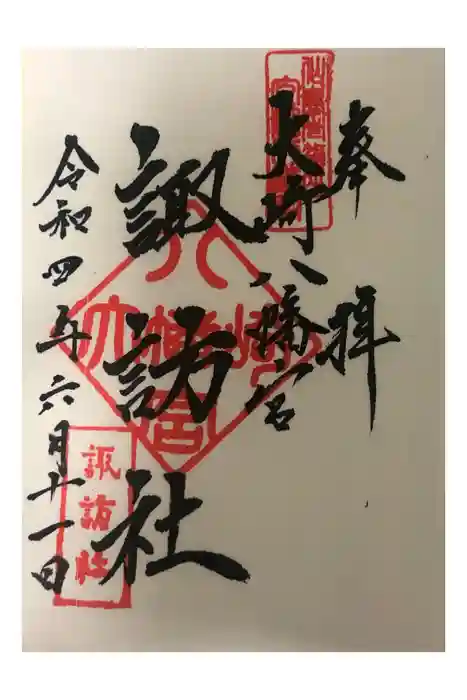 奉拝
大崎八幡宮
諏訪社
令和四年六月十一日
八幡宮
大崎
諏訪社